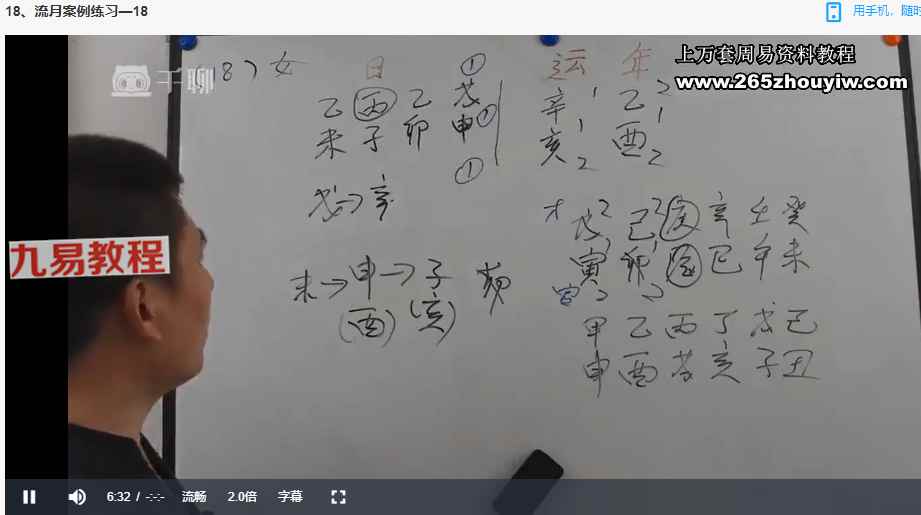 18、流月案例练习—18
用手机，随时
上万套周易资料教程
www.265zhouyiw.com
千聊
18) 女 日 ① 运 年
乙 丙 乙 戊 辛1 乙2
未 子 卯 申① 亥1 2 酉1 2
①
戊→辛
才 戊2 己2 庚 辛 壬 癸
寅 卯 辰 巳 午 未
官2 2
未→申→子
(酉) (亥)
甲 乙 丙 丁 戊 己
申 酉 戌 亥 子 丑
九易教程
6:32 / -:-:- 流畅 2.0倍 字幕